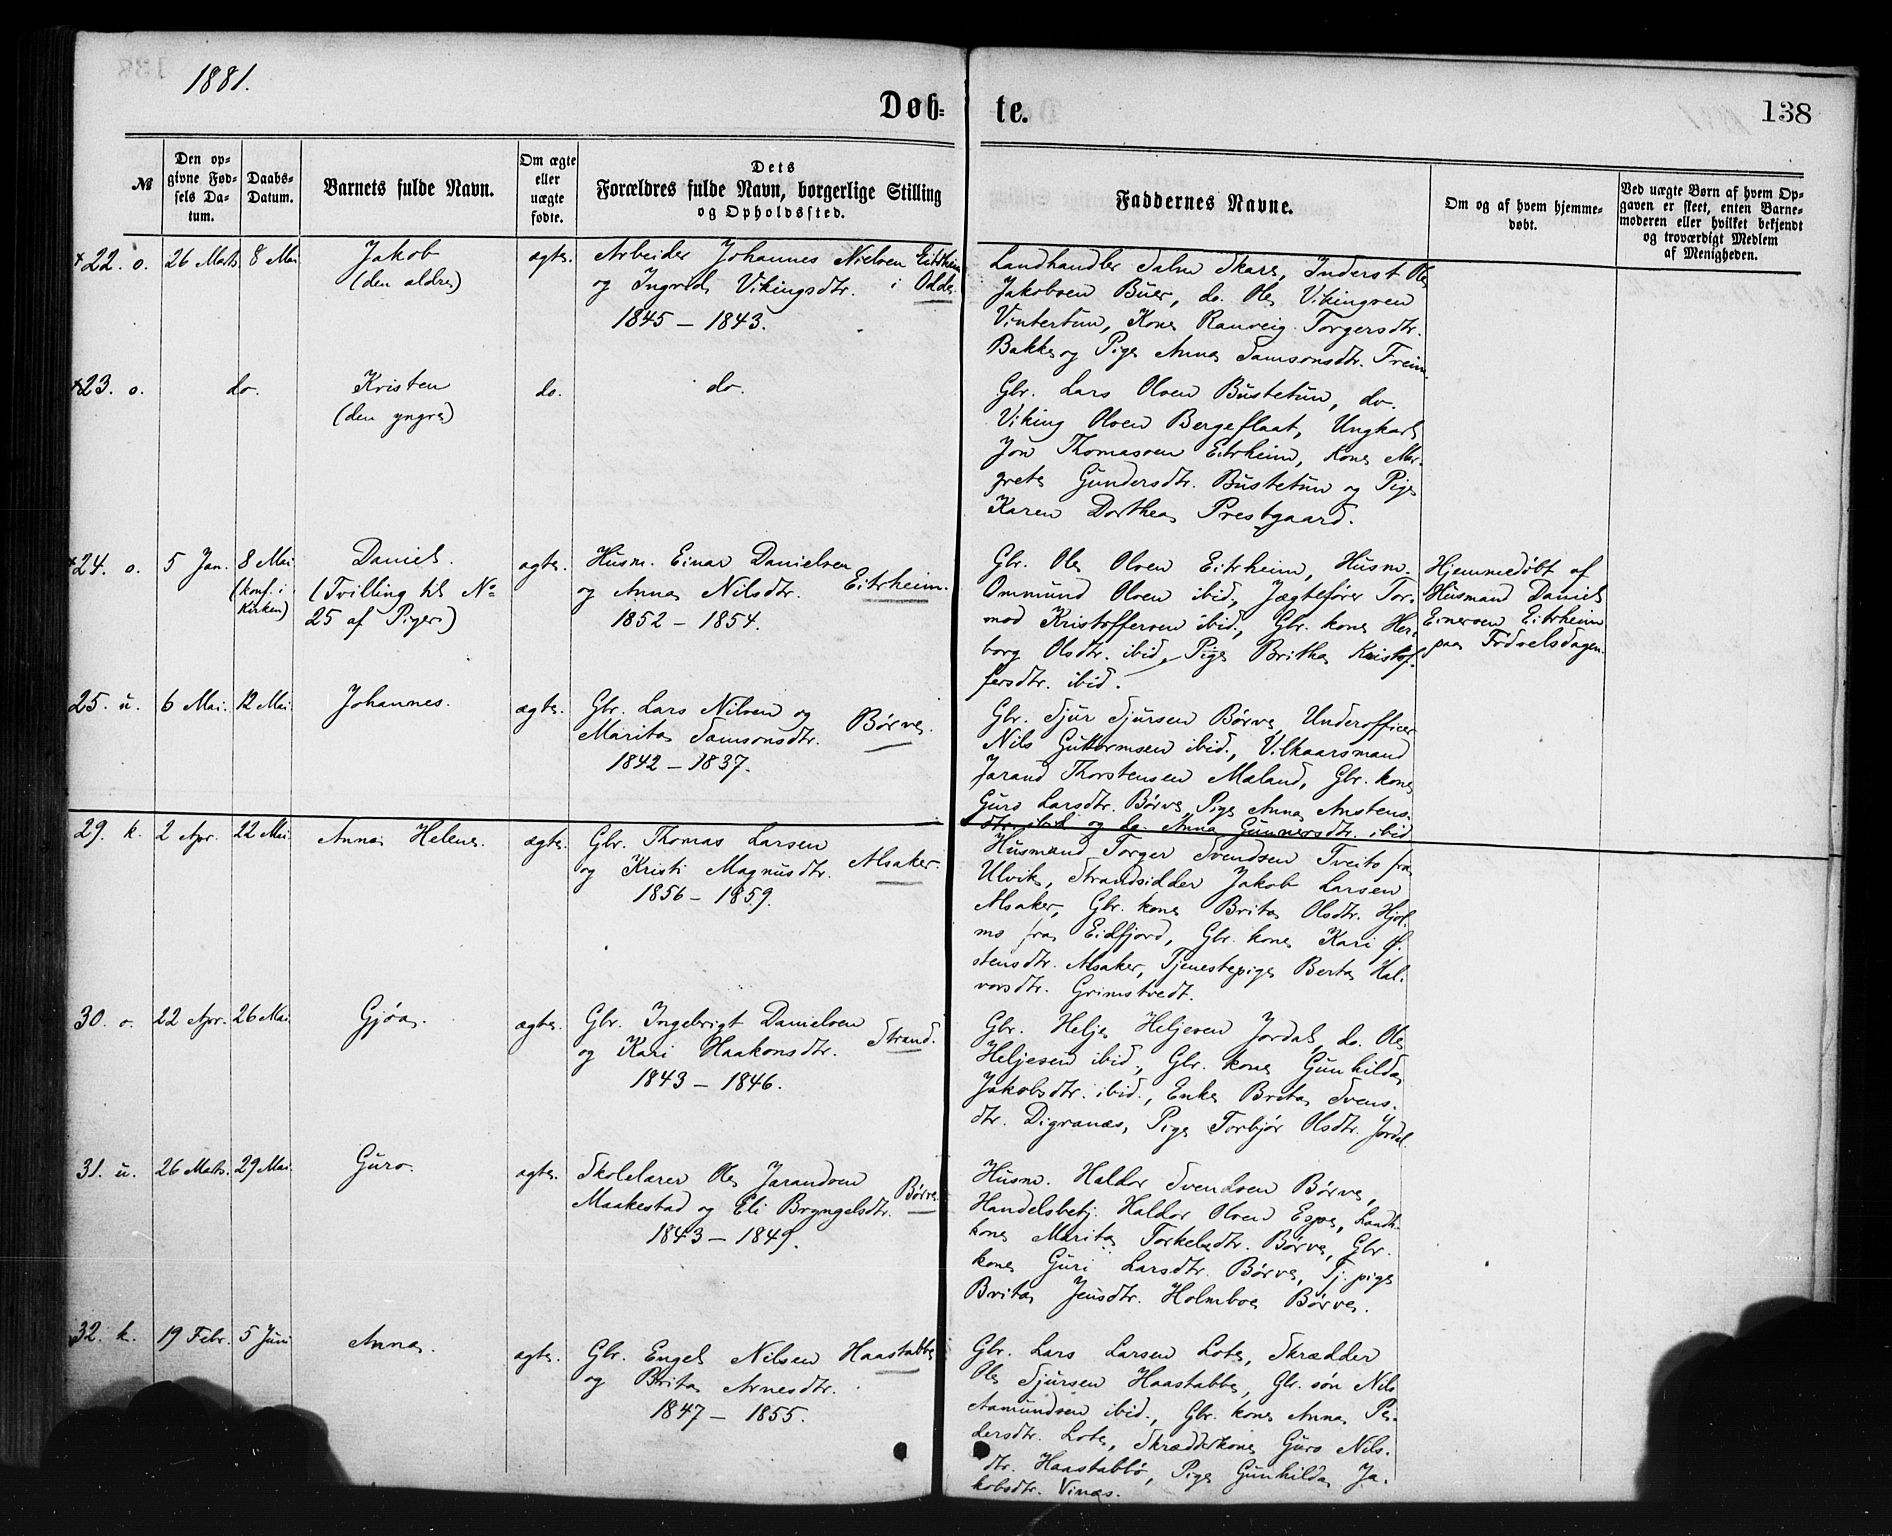 1881.
Døb= te.
138
№
Den opgivne Fødsels Datum.
Daabs-Datum.
Barnets fulde Navn.
Om ægte eller uægte fødte.
Dets Forældres fulde Navn, borgerlige Stilling og Opholdssted.
Faddernes Navne.
Om og af hvem hjemmedøbt.
Ved uægte Børn af hvem Opgaven er skeet, enten Barnemoderen eller hvilket bekjendt og troværdigt Medlem af Menigheden.
+22. o. 26 Marts 8 Mai Jakob ægte. Arbeider Johannes Nielsen Eitrheim
(den ældre) og Ingrid Vikingsdtr. i Odde.
1845 – 1843.
Landhandler Salm Skare, Inderst Ole
Jakobsen Buer, do. Ole Vikingsen
Vintertun, Kone Ranveig Torgersdtr.
Bakke og Pige Anna Samsonsdtr. Freim.
+23. o. do. Kristen do. do.
(den yngre)
Gbr. Lars Olsen Bustetun, do.
Viking Olsen Bergeflaat, Ungkarl
Jon Thomassen Eitrheim, Kone Mar-
grete Gundersdtr. Bustetun og Pige
Karen Dorthea Prestgaard.
+24. o. 5 Jan. 8 Mai Daniel. ægte. Husm. Einar Danielsen
(konf. i Kirken) (Tvilling til № og Anna Nilsdtr. Eitrheim.
25 af Piger) 1852 – 1854.
Gbr. Ole Olsen Eitrheim, Husm.
Ommund Olsen ibid., Jægtefører Tor-
mod Kristoffersen ibid., Gbr. kone Her-
borg Olsdtr. ibid., Pige Britha Kristof-
fersdtr. ibid.
Hjemmedøbt af
Husmand Daniel
Einersen Eitrheim
paa Fødselsdagen.
25. u. 6 Mai. 12 Mai. Johannes. ægte. Gbr. Lars Nilsen og
Marita Samsonsdtr. Børve.
1842 – 1837.
Gbr. Sjur Sjursen Børve, Underofficer
Nils Guttormsen ibid., Vilkaarsmand
Jarand Thorstensen Maland, Gbr. kone
Guro Larsdtr. Børve, Pige Anna Anstens-
dtr. ibid og do. Anna Gunnersdtr. ibid
29. k. 2 Apr. 22 Mai. Anna Helene. ægte. Gbr. Thomas Larsen
og Kristi Magnusdtr. Alsaker.
1856 – 1859.
Husmand Torger Svendsen Tveito fra
Ulvik, Strandsidder Jakob Larsen
Alsaker, Gbr. kone Brita Olsdtr. Hjøl-
mo fra Eidfjord, Gbr. kone Kari Ø-
stensdtr. Alsaker, Tjenestepige Berta Hal-
vorsdtr. Grimstvedt.
30. o. 22 Apr. 26 Mai. Gjøa. ægte. Gbr. Ingebrigt Danielsen
og Kari Haakonsdtr. Strand.
1843 – 1846.
Gbr. Helje Heljesen Jordal, do. Ole
Heljesen ibid., Gbr. kone Gunhilda
Jakobsdtr. ibid., Enke Brita Svens-
dtr. Digranæs, Pige Torbjør Olsdtr. Jordal
31. u. 26 Marts. 29 Mai. Guro. ægte. Skolelærer Ole Jarandsen
Maakestad og Eli Bryngelsdtr. Børve.
1843 – 1849.
Husm. Haldor Svendsen Børve,
Handelsbetj. Haldor Olsen Espe, Landh.
kone Marita Torkelsdtr. Børve, Gbr.
kone Guri Larsdtr. Børve, Tj. pige
Brita Jensdtr. Holmboe Børve.
32. k. 19 Febr. 5 Juni Anna. ægte. Gbr. Engel Nilsen Haastabbe
og Brita Arnesdtr.
1847 – 1855.
Gbr. Lars Larsen Lote, Skrædder
Ole Sjursen Haastabbe, Gbr. søn Nils
Aamundsen ibid., Gbr. kone Anna Pe-
dersdtr. Lote, Skrædderkone Guro Nils-
dtr. Haastabbø, Pige Gunhilda Ja-
kobsdtr. Vines.